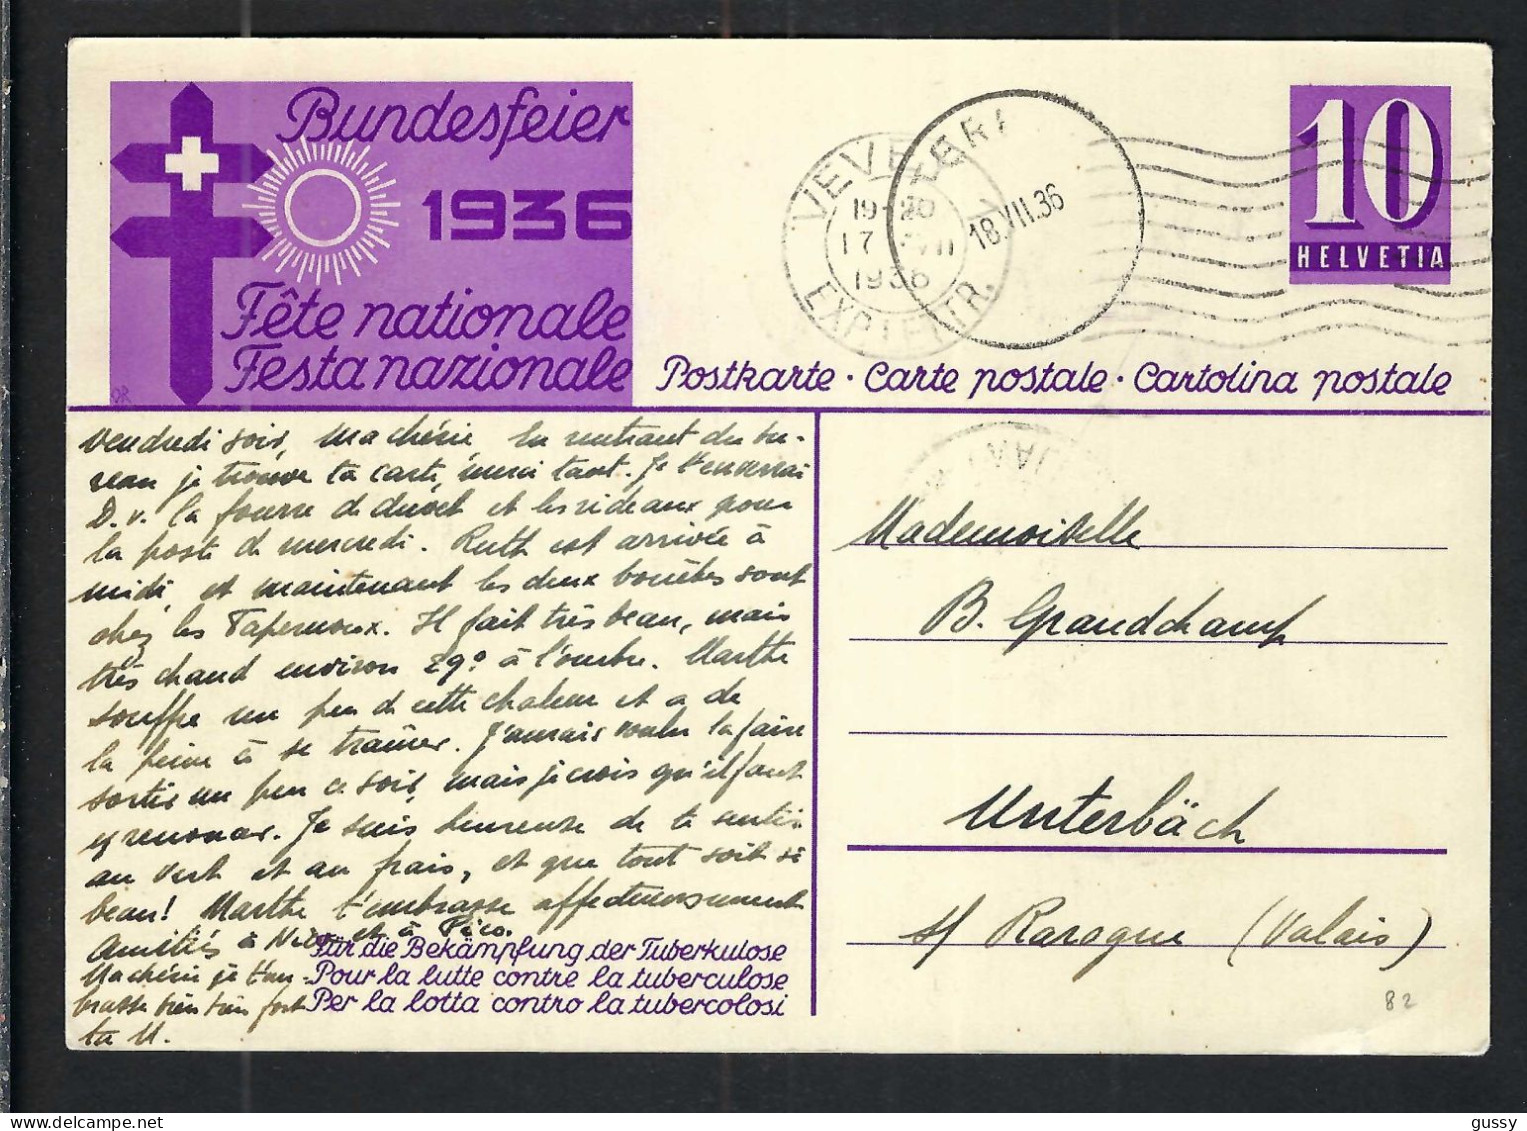 Bundesfeier
1936
Fête nationale
Festa nazionale
10
HELVETIA
VEVEY
19-20
17 VII
1936
EXP. LETTR.
18.VII.36
Postkarte · Carte postale · Cartolina postale
Vendredi soir, Ma chérie, En rentrant du bu-
reau je trouve ta carte, merci tant. Je t'enverrai
D.v. la fourre de duvet et les rideaux pour
la poste de mercredi. Ruth est arrivée à
midi et maintenant les deux sont
chez les Tapernoux. Il fait très beau, mais
très chaud environ 29° à l'ombre. Marthe
souffre un peu de cette chaleur et a de
la peine à se traîner. J'aurais voulu la faire
sortir un peu ce soir, mais je crois qu'il faut
y renoncer. Je suis heureuse de te sentir
au vert et au frais, et que tout soit si
beau! Marthe t'embrasse affectueusement
Amitiés à et à Pico.
Ma chérie je t'em-
brasse bien bien fort
ta M.
Für die Bekämpfung der Tuberkulose
Pour la lutte contre la tuberculose
Per la lotta contro la tubercolosi
Mademoiselle
B. Grandchamp
Unterbäch
s/ Rarogne (Valais)
82
gussy